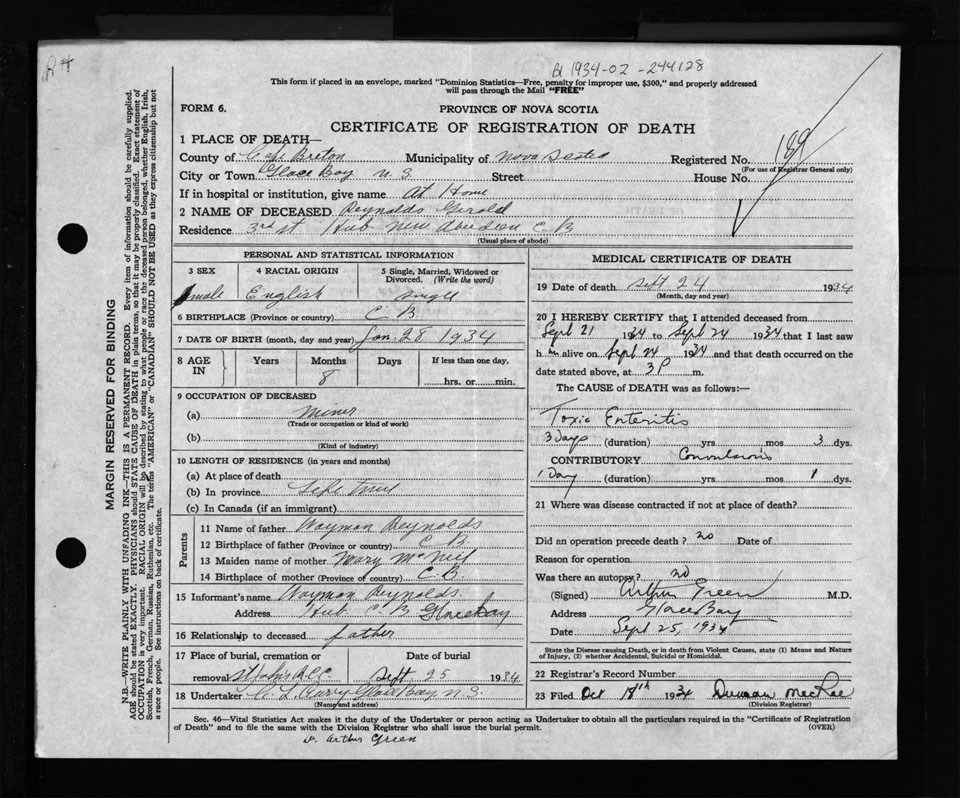 1934-02-244128
This form if placed in an envelope, marked "Dominion Statistics—Free, penalty for improper use, $300," and properly addressed
will pass through the Mail "FREE"
FORM 6. PROVINCE OF NOVA SCOTIA
CERTIFICATE OF REGISTRATION OF DEATH
1 PLACE OF DEATH—
County of Cape Breton Municipality of Nova Scotia Registered No. 189
(For use of Registrar General only)
City or Town Glace Bay N.S. Street House No.
If in hospital or institution, give name At Home
2 NAME OF DECEASED Reynolds Gerald
Residence 3rd st Hub New Aberdeen C B
(Usual place of abode)
PERSONAL AND STATISTICAL INFORMATION
3 SEX 4 RACIAL ORIGIN 5 Single, Married, Widowed or
Divorced. (Write the word)
male English single
6 BIRTHPLACE (Province or country) C B
7 DATE OF BIRTH (month, day and year) Jan 28 1934
8 AGE IN Years Months Days If less than one day,
8 hrs. or min.
9 OCCUPATION OF DECEASED
(a) Miner
(Trade or occupation or kind of work)
(b)
(Kind of industry)
10 LENGTH OF RESIDENCE (in years and months)
(a) At place of death
(b) In province Life time
(c) In Canada (if an immigrant)
Parents
11 Name of father Wayman Reynolds
12 Birthplace of father (Province or country) C B
13 Maiden name of mother Mary McNeil
14 Birthplace of mother (Province or country) C.B.
15 Informant's name Wayman Reynolds.
Address Hub C B Glace bay
16 Relationship to deceased father
17 Place of burial, cremation or Date of burial
removal Sept 25 1934
18 Undertaker Glace Bay N.S.
(Name and address)
MEDICAL CERTIFICATE OF DEATH
19 Date of death Sept 24 1934
(Month, day and year)
20 I HEREBY CERTIFY that I attended deceased from
Sept 21 1934 to Sept 24 1934 that I last saw
h im alive on Sept 24 1934 and that death occurred on the
date stated above, at 3 P m.
The CAUSE OF DEATH was as follows:—
Toxic Enteritis
3 Days (duration) yrs mos 3 dys.
CONTRIBUTORY Convulsions
1 Day (duration) yrs. mos 1 dys.
21 Where was disease contracted if not at place of death?
Did an operation precede death? no Date of
Reason for operation
Was there an autopsy? no
(Signed) Arthur Green M.D.
Address Glace Bay
Date Sept 25, 1934
State the Disease causing Death, or in death from Violent Causes, state (1) Means and Nature
of Injury, (2) whether Accidental, Suicidal or Homicidal.
22 Registrar's Record Number
23 Filed Oct 18th 1934 Duncan MacRae
(Division Registrar)
Sec. 46—Vital Statistics Act makes it the duty of the Undertaker or person acting as Undertaker to obtain all the particulars required in the "Certificate of Registration
of Death" and to file the same with the Division Registrar who shall issue the burial permit. (OVER)
Dr. Arthur Green
MARGIN RESERVED FOR BINDING
N.B.—WRITE PLAINLY WITH UNFADING INK—THIS IS A PERMANENT RECORD. Every item of information should be carefully supplied.
AGE should be stated EXACTLY. PHYSICIANS should STATE CAUSE OF DEATH in plain terms, so that it may be properly classified. Exact statement of
OCCUPATION is very important. RACIAL ORIGIN will be described by stating to what people or race the deceased person belonged, whether English, Irish,
Scottish, French, German, Russian, Ruthenian, etc. The terms "AMERICAN" or "CANADIAN" SHOULD NOT BE USED as they express citizenship but not
a race or people. See instructions on back of certificate.